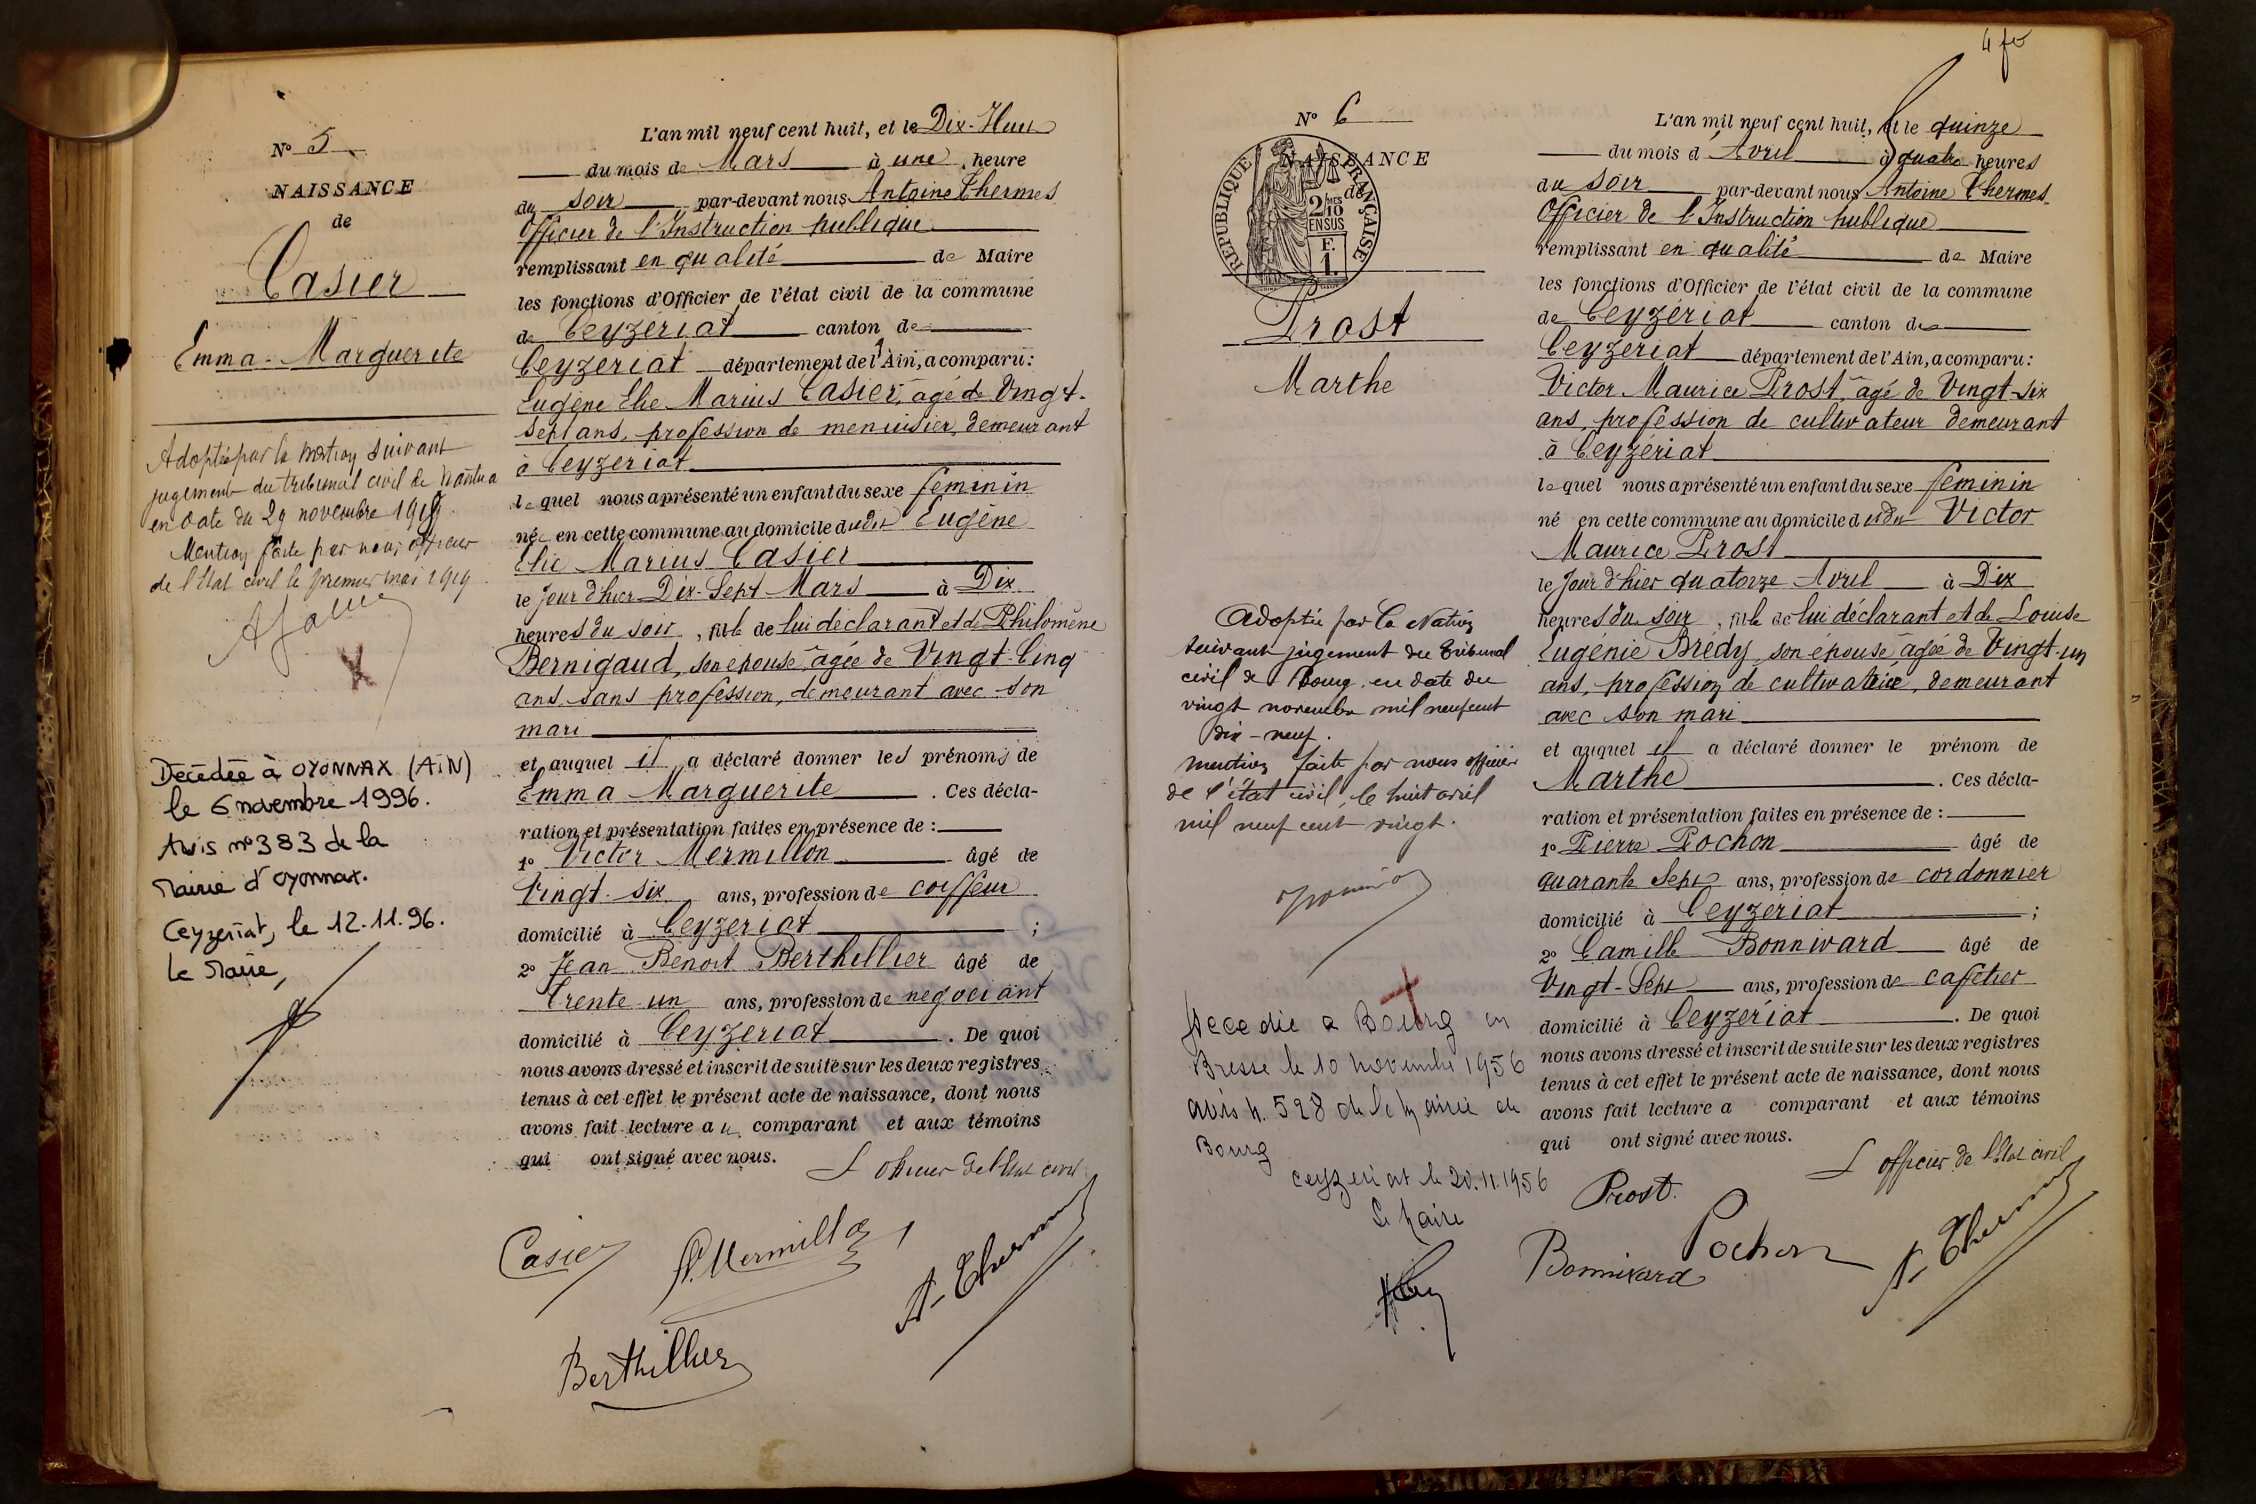 N° 5
NAISSANCE
de
Casier
Emma-Marguerite
Adoptée par la nation suivant
jugement du tribunal civil de Nantua
en date du 29 novembre 1918.
Mention faite par nous officier
de l'Etat civil le premier mai 1919.
Décédée à OYONNAX (AIN)
le 6 novembre 1996.
Avis n° 383 de la
Mairie d'Oyonnax.
Ceyzériat, le 12.11.96.
Le Maire,
L'an mil neuf cent huit, et le Dix-Huit
du mois de Mars à une heure
du soir par-devant nous Antoine Thermes
Officier de l'Instruction publique
remplissant en qualité de Maire
les fonctions d'Officier de l'état civil de la commune
de Ceyzériat canton de
Ceyzeriat département de l'Ain, a comparu :
Eugène Elie Marius Casier, âgé de Vingt-
sept ans, profession de menuisier, demeurant
à Ceyzeriat
lequel nous a présenté un enfant du sexe féminin
née en cette commune au domicile dudit Eugène
Elie Marius Casier
le jour d'hier Dix-Sept Mars à Dix
heures du soir, fille de lui déclarant et de Philomène
Bernigaud, son épouse âgée de Vingt-Cinq
ans, sans profession, demeurant avec son
mari
et auquel il a déclaré donner les prénoms de
Emma Marguerite. Ces décla-
ration et présentation faites en présence de :
1° Victor Mermillon âgé de
Vingt-six ans, profession de coiffeur
domicilié à Ceyzeriat ;
2° Jean Benoit Berthillier âgé de
Trente-un ans, profession de negociant
domicilié à Ceyzeriat. De quoi
nous avons dressé et inscrit de suite sur les deux registres
tenus à cet effet le présent acte de naissance, dont nous
avons fait lecture au comparant et aux témoins
qui ont signé avec nous.
L'officier de l'Etat civil
Casier
Mermillon
A. Thermes
Berthillier
N° 6
NAISSANCE
de
REPUBLIQUE FRANÇAISE
2/10MES
EN SUS
F.
1.
Prost
Marthe
Adoptée par la Nation
suivant jugement du Tribunal
civil de Bourg en date du
vingt novembre mil neuf cent
dix-neuf.
mention faite par nous officier
de l'état civil, le huit avril
mil neuf cent vingt.
Décédée à Bourg en
Bresse le 10 novembre 1956
avis n. 528 de la mairie de
Bourg
Ceyzeriat le 20.11.1956
Le Maire
L'an mil neuf cent huit, et le quinze
du mois d'Avril à quatre heures
du soir par-devant nous Antoine Thermes
Officier de l'Instruction publique
remplissant en qualité de Maire
les fonctions d'Officier de l'état civil de la commune
de Ceyzériat canton de
Ceyzériat département de l'Ain, a comparu :
Victor Maurice Prost, âgé de Vingt-six
ans, profession de cultivateur demeurant
à Ceyzériat
lequel nous a présenté un enfant du sexe féminin
né en cette commune au domicile dudit Victor
Maurice Prost
le jour d'hier quatorze Avril à Dix
heures du soir, fille de lui déclarant et de Louise
Eugénie Brédy son épouse âgée de Vingt-un
ans, profession de cultivatrice, demeurant
avec son mari
et auquel il a déclaré donner le prénom de
Marthe. Ces décla-
ration et présentation faites en présence de :
1° Pierre Pochon âgé de
quarante sept ans, profession de cordonnier
domicilié à Ceyzeriat ;
2° Camille Bonnivard âgé de
Vingt-Sept ans, profession de cafetier
domicilié à Ceyzériat. De quoi
nous avons dressé et inscrit de suite sur les deux registres
tenus à cet effet le présent acte de naissance, dont nous
avons fait lecture a comparant et aux témoins
qui ont signé avec nous.
L'officier de l'Etat civil
Prost.
Pochon
Bonnivard
A. Thermes